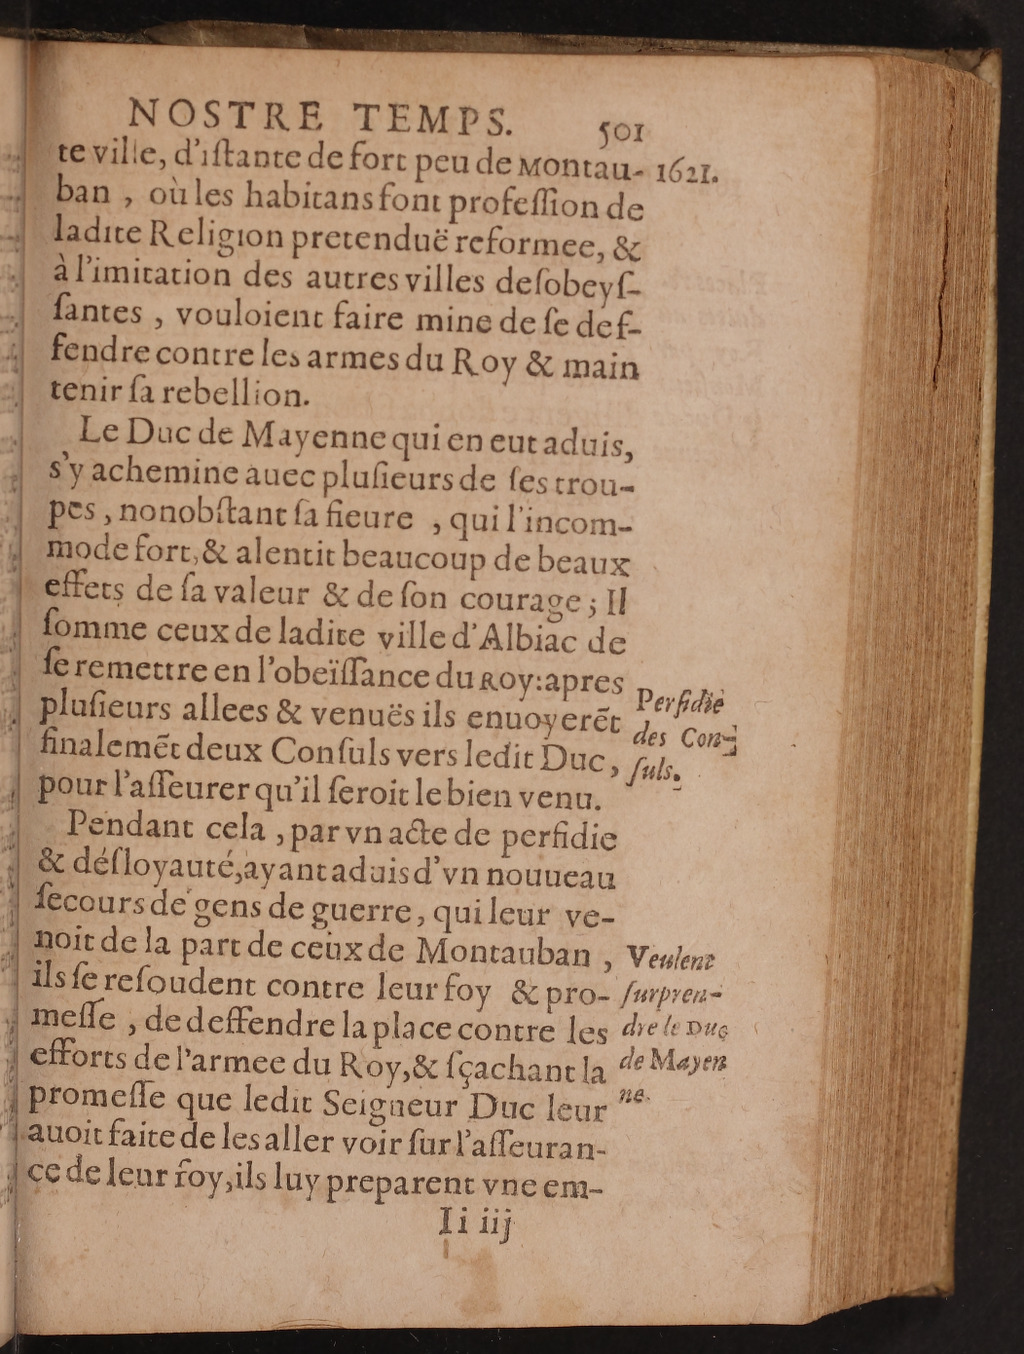 NOSTRE TEMPS. 501
te ville, d'iſtante de fort peu de Montau- 1621.
ban , où les habitans font profeſſion de
ladite Religion pretenduë reformee, &
à l'imitation des autres villes deſobeyſ-
ſantes , vouloient faire mine de ſe deſ-
fendre contre les armes du Roy & main
tenir ſa rebellion.
Le Duc de Mayenne qui en eut aduis,
s'y achemine auec pluſieurs de ſes trou-
pes , nonobſtant ſa fieure , qui l'incom-
mode fort, & alentit beaucoup de beaux
effets de ſa valeur & de ſon courage ; Il
ſomme ceux de ladite ville d'Albiac de
ſe remettre en l'obeïſſance du Roy: apres
pluſieurs allees & venuës ils enuoyerẽt
finalemẽt deux Conſuls vers ledit Duc ,
pour l'aſſeurer qu'il ſeroit le bien venu.
Perfidie
des Con-
ſuls.
Pendant cela , par vn acte de perfidie
& déſloyauté, ayant aduis d'vn nouueau
ſecours de gens de guerre , qui leur ve-
noit de la part de ceux de Montauban ,
ils ſe reſoudent contre leur foy & pro-
meſſe , de deffendre la place contre les
efforts de l'armee du Roy, & ſçachant la
promeſſe que ledit Seigneur Duc leur
auoit faite de les aller voir ſur l'aſſeuran-
ce de leur foy, ils luy preparent vne em-
Veulent
ſurpren-
dre le Duc
de Mayen
ne.
Ii iij